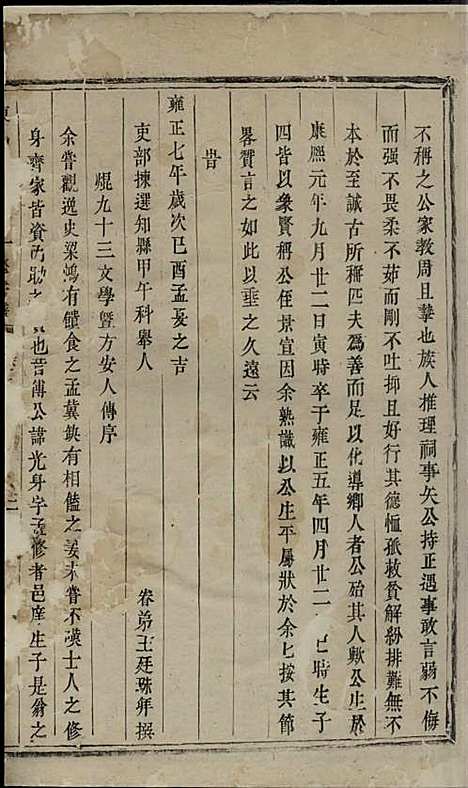 不稱之公家教周且摯也族人推理祠事矢公持正遇事敢言弱不侮
而强不畏柔不茹而剛不吐抑且好行其德恤孤救貧解紛排難無不
本於至誠古所稱匹夫為善而足以化導鄉人者公殆其人歟公生於
康熙元年九月廿二日寅時卒于雍正五年四月廿二 時生子
四皆以象賢稱公侄景宜因余熟識以公生平屬狀於余匕按其節
畧贊言之如此以垂之久遠云
旹
雍正七年歲次己酉孟夏之吉
吏部揀選知縣甲午科舉人
卷弟王廷珠拜撰
焜九十三文學暨方安人傳序
余嘗觀逸史梁鴻有饋食之孟冀缺有相饁之妻未嘗不嘆士人之修
身齊家皆資內助之 也昔傳公諱光身字 修者邑庠生子是翁之